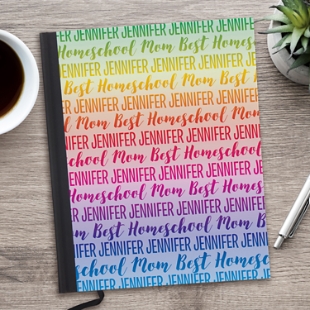 JENNIFER JENNIFER JENNIFER
Best Homeschool Mom Best
JENNIFER JENNIFER JENNIFER
Mom Best Homeschool Mom
JENNIFER JENNIFER JENNIFER
Best Homeschool Mom Best
JENNIFER JENNIFER JENNIFER
Homeschool Mom Best Homes
JENNIFER JENNIFER JENNIFER
Homeschool Mom Best Homes
JENNIFER JENNIFER JENNIFER
Mom Best Homeschool Mom
JENNIFER JENNIFER JENNIFER
Homeschool Mom Best Home
JENNIFER JENNIFER JENNIFER